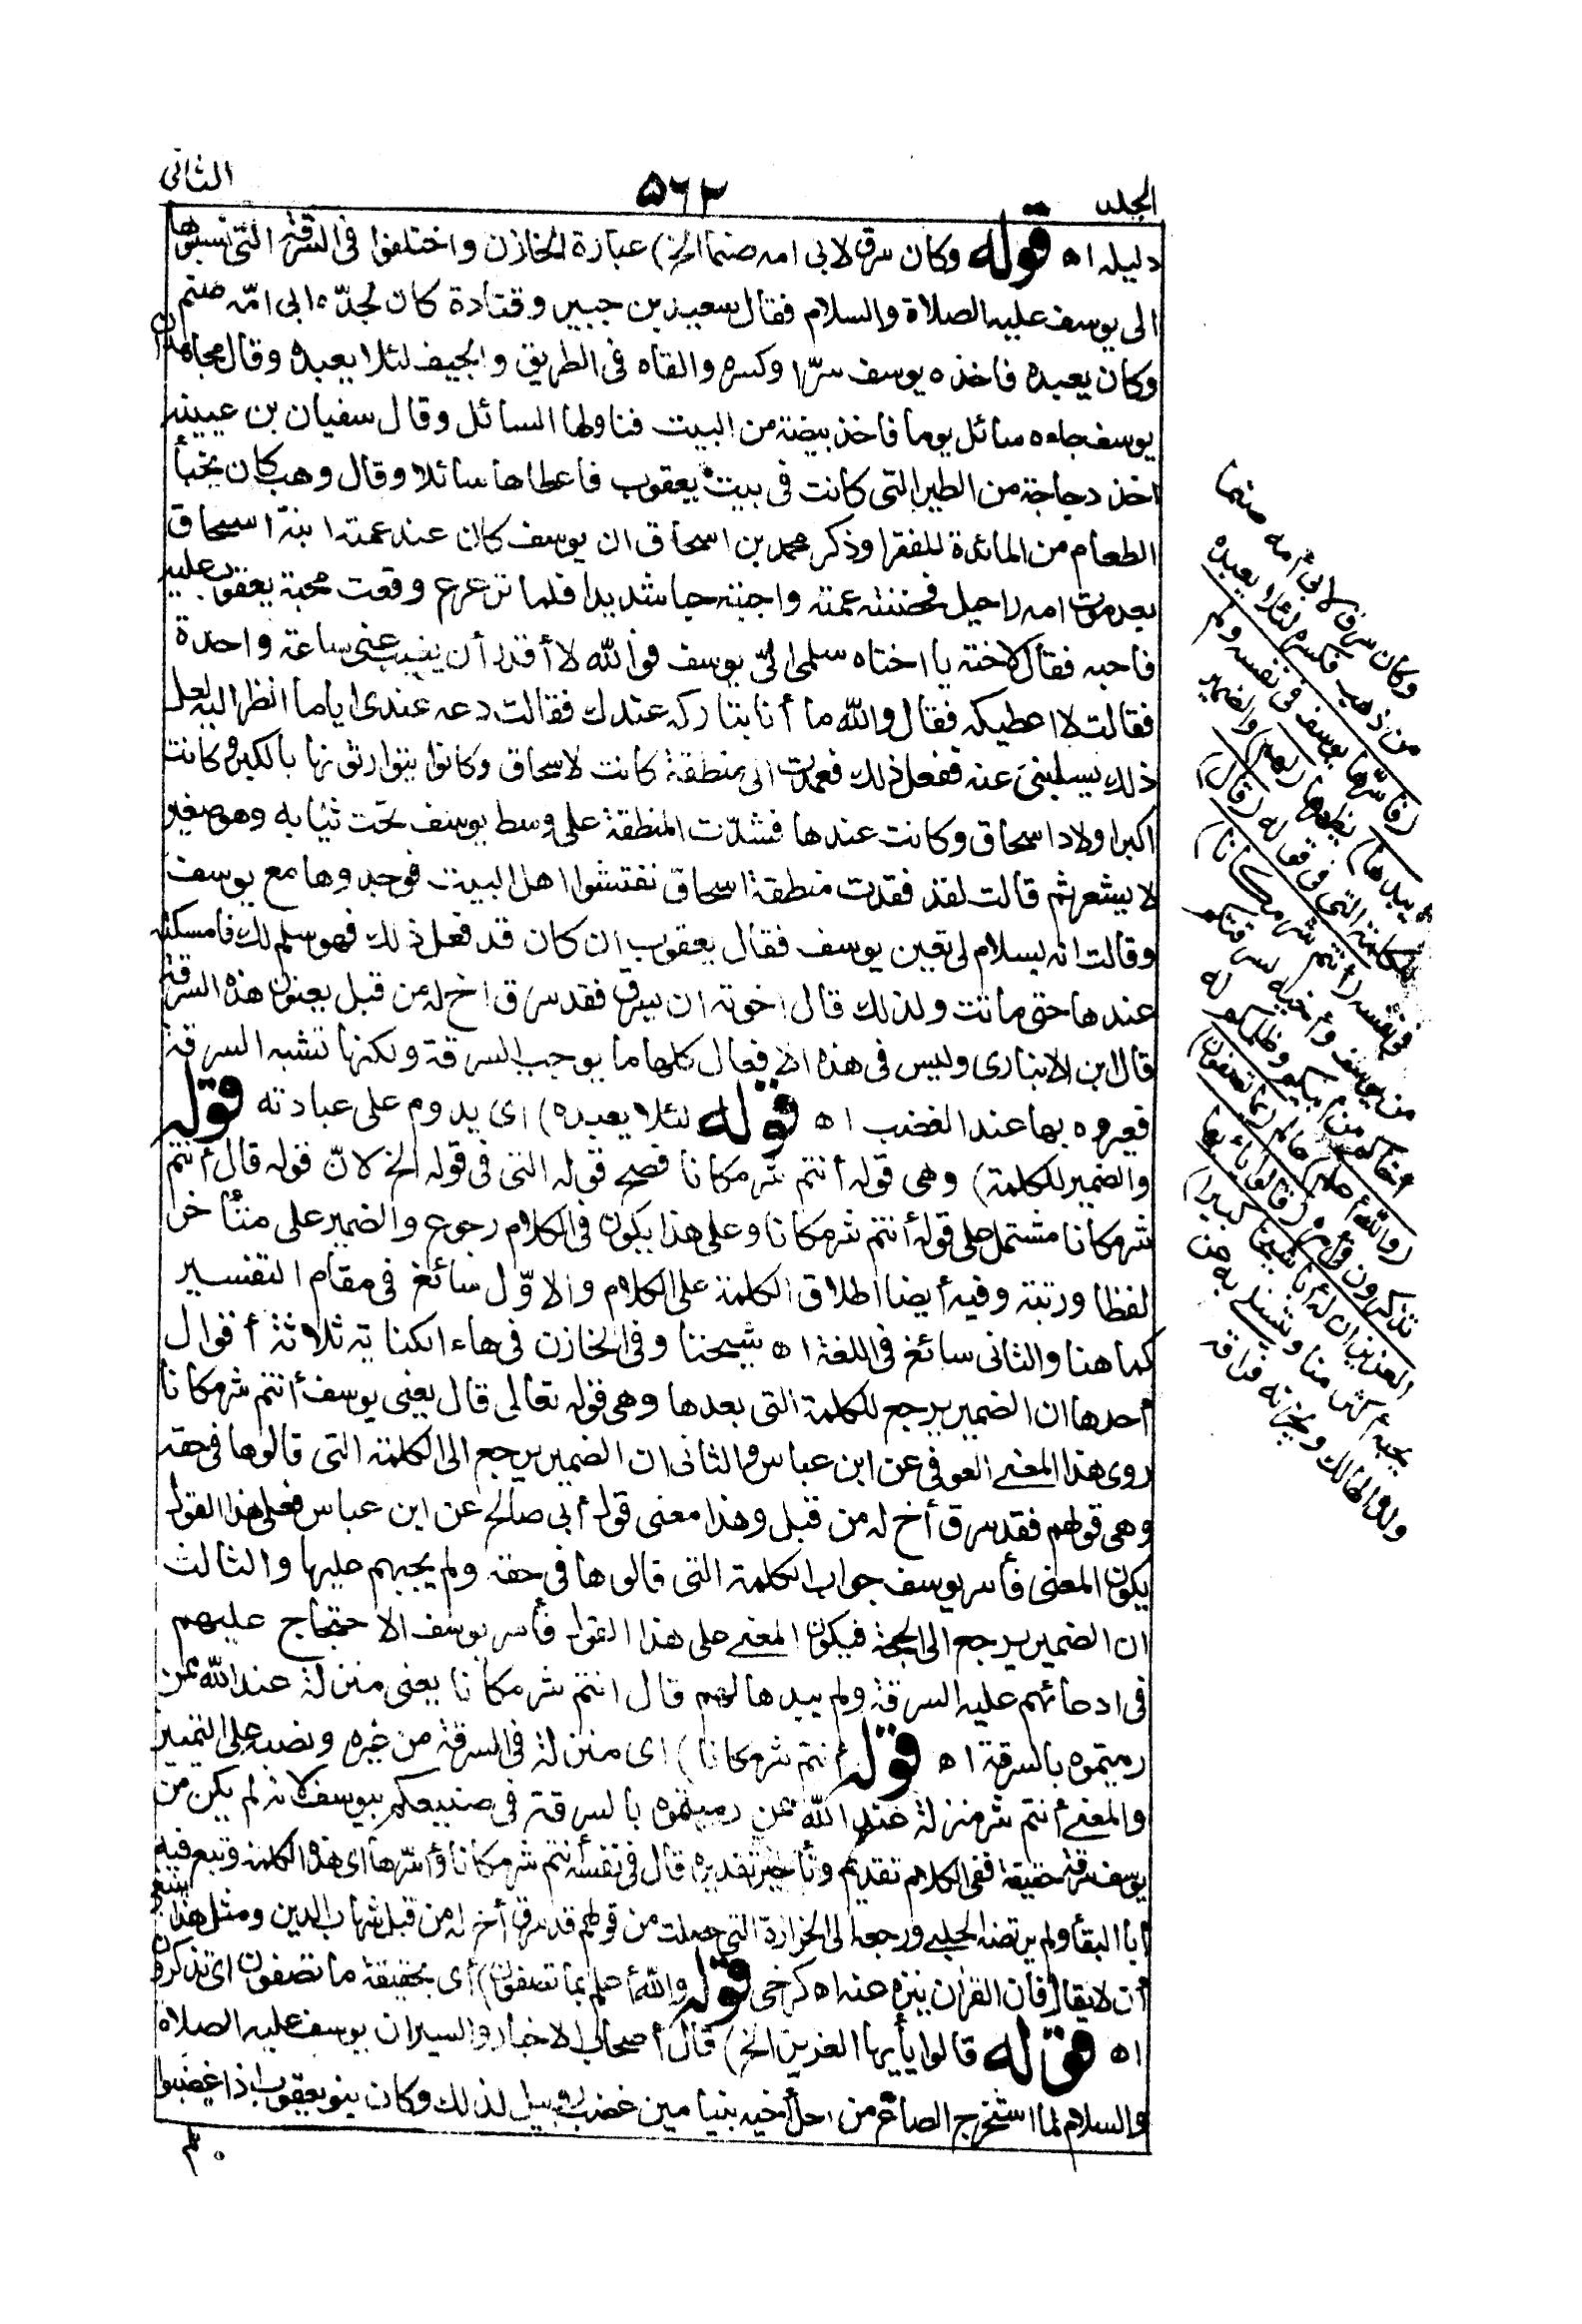 الجلد ٥٦٢ الثانى
دليله اه قوله وكان سرق لابى امه صنما الخ) عبارة الخازن واختلفوا فى السرقة التى نسبوها
الى يوسف عليه الصلاة والسلام فقال سعيد بن جبير وقتادة كان لجدّه ابى امّه صنم
وكان يعبده فاخذه يوسف سرّا وكسره والقاه فى الطريق والجيف لئلا يعبده وقال مجاهد ان
يوسف جاءه سائل يوما فاخذ بيضة من البيت فناولها السائل وقال سفيان بن عيينة
اخذ دجاجة من الطير التى كانت فى بيت يعقوب فاعطاها سائلا وقال وهب كان يخبأ
الطعام من المائدة للفقرا وذكر محمد بن اسحاق ان يوسف كان عند عمته ابنة اسحاق
بعد موت امه راحيل فحضنته عمته واحبته حبا شديدا فلما ترعرع وقعت محبة يعقوب عليه
فاحبه فقال لاخته يا اختاه سلمى الىّ يوسف فوالله لا أقدر أن يغيب عنى ساعة واحدة
فقالت لا اعطيكه فقال والله ما أنا بتاركه عندك فقالت دعه عندى اياما انظر اليه لعل
ذلك يسلينى عنه ففعل ذلك فعمدت الى منطقة كانت لاسحاق وكانوا يتوارثونها بالكبر وكانت
اكبر اولاد اسحاق وكانت عندها فشدّت المنطقة على وسط يوسف تحت ثيابه وهو صغير
لا يشعر ثم قالت لقد فقدت منطقة اسحاق ففتشوا اهل البيت فوجدوها مع يوسف
وقالت انه لسلام لى تعين يوسف فقال يعقوب ان كان قد فعل ذلك فهو سلم لك فامسكته
عندها حتى ماتت ولذلك قال اخوته ان يسرق فقد سرق اخ له من قبل يعنون هذه السرقة
قال ابن الانبارى وليس فى هذه الافعال كلها ما يوجب السرقة ولكنها تشبه السرقة
فعيروه بها عند الغضب اه قوله لئلا يعبده) اى يدوم على عبادته قوله
والضمير للكلمة) وهى قوله أنتم شر مكانا فصح قوله التى فى قوله الخ لانّ قوله قال أنتم
شر مكانا مشتمل على قوله أنتم شر مكانا وعلى هذا يكون فى الكلام رجوع والضمير على متأخر
لفظا ورتبة وفيه أيضا اطلاق الكلمة على الكلام والاوّل سائغ فى مقام التفسير
كما هنا والثانى سائغ فى اللغة اه شيخنا وفى الخازن فى هاء الكناية ثلاثة أقوال
أحدها ان الضمير يرجع للكلمة التى بعدها وهى قوله تعالى قال يعنى يوسف أنتم شر مكانا
روى هذا المعنى العوفى عن ابن عباس والثانى ان الضمير يرجع الى الكلمة التى قالوها فى حقه
وهى قولهم فقد سرق أخ له من قبل وهذا معنى قول أبى صالح عن ابن عباس فعلى هذا القول
يكون المعنى فأسر يوسف جواب الكلمة التى قالوها فى حقه ولم يجبهم عليها والثالث
ان الضمير يرجع الى الحجة فيكون المعنى على هذا القول فأسر يوسف الاحتجاج عليهم
فى ادعائهم عليه السرقة ولم يبدها لهم قال انتم شر مكانا يعنى منزلة عند الله ممن
رميتموه بالسرقة اه قوله أنتم شر مكانا) اى منزلة فى السرقة من غيره ونصبه على التمييز
والمعنى أنتم شر منزلة عند الله ممن رميتموه بالسرقة فى صنيعكم بيوسف لانه لم يكن من
يوسف سرقة حقيقة ففى الكلام تقديم وتأخير تقديره قال فى نفسه أنتم شر مكانا وأسرّها اى هذه الكلمة وتبع فيه
أبا البقا ولم يرتضه الحلبى ورجعه الى الحزازة التى حصلت من قولهم قد سرق أخ له من قبل شهاب الدين ومثل هذا ينبغى
أن لا يقال فان القرآن ينزه عنه اه كرخى قوله والله أعلم بما تصفون) أى بحقيقة ما تصفون اى تذكرون
اه قوله قالوا يأيها العزيز الخ) قال أصحاب الاخبار والسير ان يوسف عليه الصلاة
والسلام لما استخرج الصاع من رحل أخيه بنيامين غضب روبيل لذلك وكان بنو يعقوب اذا غضبوا
وكان سرق لابى أمه صنما
من ذهب فكسره لئلا يعبده
(فأسرّها يوسف فى نفسه ولم
يبدها) يظهرها (لهم) والضمير
للكلمة التى فى قوله (قال)
فى نفسه (أنتم شر مكانا)
من يوسف وأخيه لسرقتكم
أخاكم من أبيكم وظلمكم له
(والله أعلم) عالم (بما تصفون)
تذكرون فى أمره (قالوا يأيها
العزيز ان له أبا شيخا كبيرا)
يحبه أكثر منا ويتسلى به عن
ولده الهالك ويحزنه فراقه